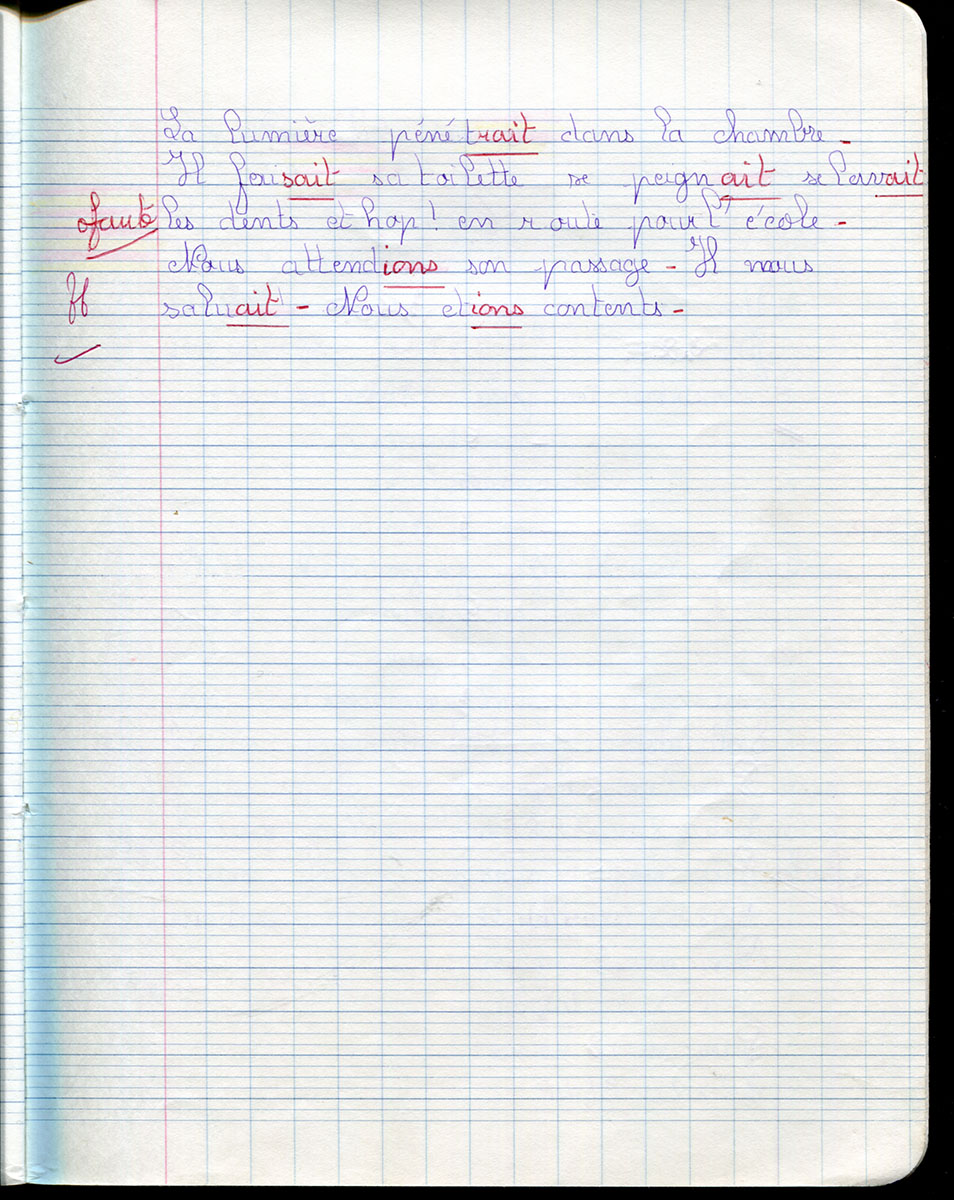 La lumière pénétrait dans la chambre.
Il faisait sa toilette se peignait se lavait
0 faute les dents et hop! en route pour l'école.
Nous attendions son passage. Il nous
saluait. Nous etions contents.